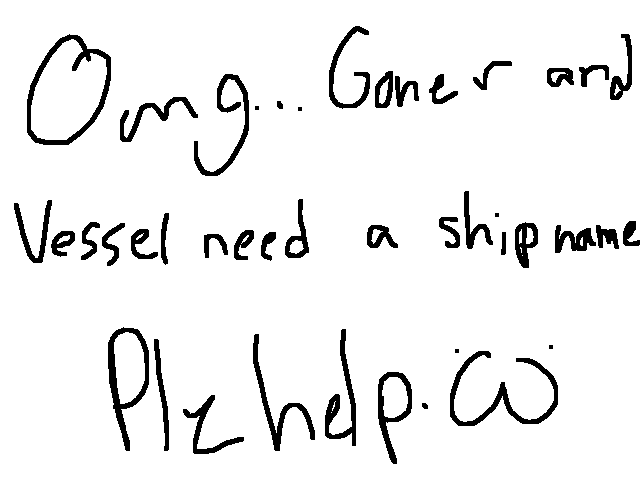 Omg... Goner and
Vessel need a ship name
Plz help. ·ω·